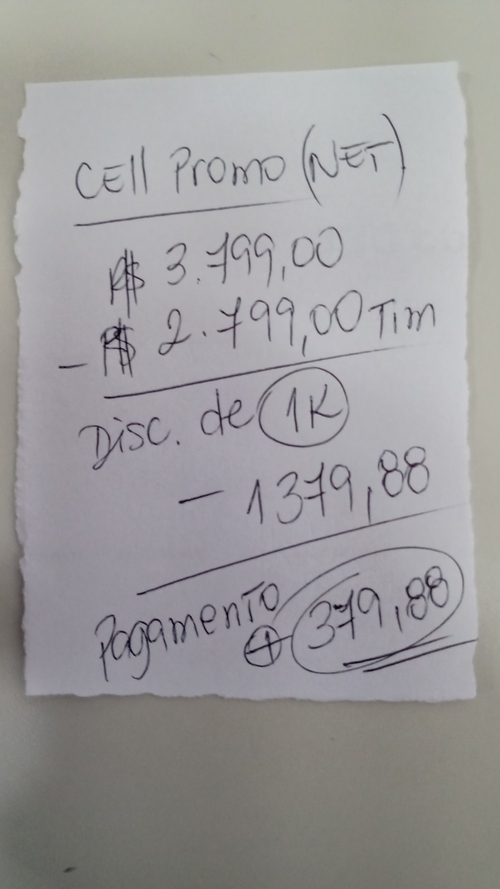 CEll Promo (NET)
R$ 3.799,00
- R$ 2.799,00 Tim
Disc. de 1K
- 1379,88
Pagamento
+ 379,88